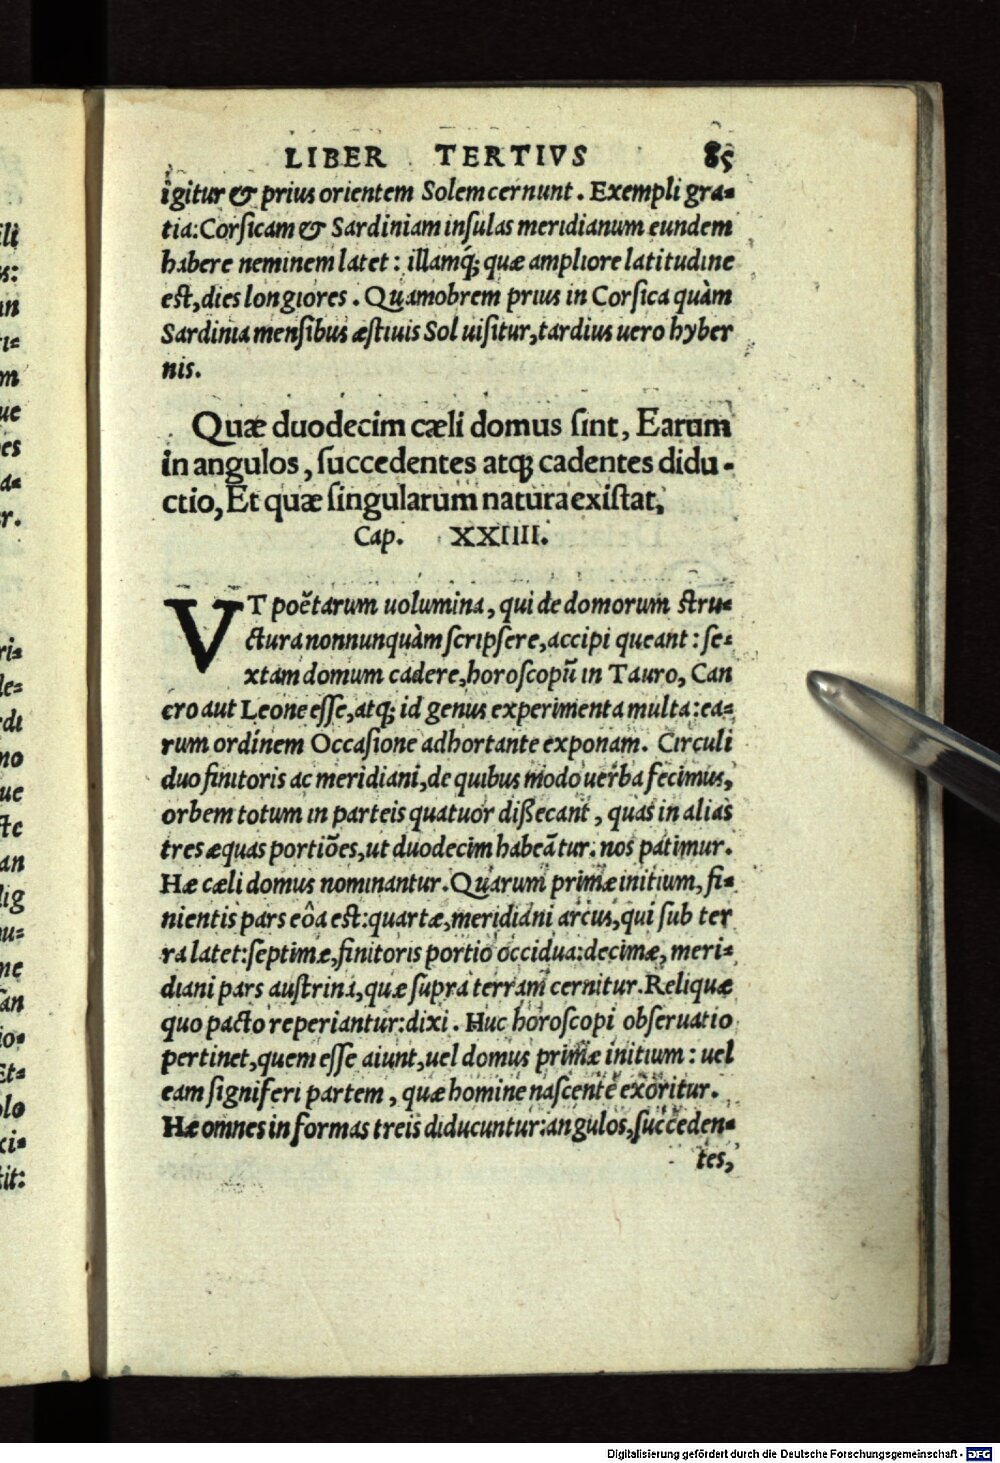 LIBER TERTIVS 85
igitur & prius orientem Solem cernunt. Exempli gra-
tia: Corsicam & Sardiniam insulas meridianum eundem
habere neminem latet: illamq; quæ ampliore latitudine
est, dies longiores. Quamobrem prius in Corsica quàm
Sardinia mensibus æstiuis Sol uisitur, tardius uero hyber
nis.
Quæ duodecim cæli domus sint, Earum
in angulos, succedentes atq; cadentes didu-
ctio, Et quæ singularum natura existat,
Cap. XXIIII.
VT poëtarum uolumina, qui de domorum stru-
ctura nonnunquàm scripsere, accipi queant: se-
xtam domum cadere, horoscopũ in Tauro, Can
cro aut Leone esse, atq; id genus experimenta multa: ea-
rum ordinem Occasione adhortante exponam. Circuli
duo finitoris ac meridiani, de quibus modo uerba fecimus,
orbem totum in parteis quatuor dißecant, quas in alias
tres æquas portiões, ut duodecim habeãtur: nos patimur.
Hæ cæli domus nominantur. Quarum primæ initium, fi-
nientis pars eôa est: quartæ, meridiani arcus, qui sub ter
ra latet: septimæ, finitoris portio occidua: decimæ, meri-
diani pars austrina, quæ supra terram cernitur. Reliquæ
quo pacto reperiantur: dixi. Huc horoscopi obseruatio
pertinet, quem esse aiunt, uel domus primæ initium: uel
eam signiferi partem, quæ homine nascente exoritur.
Hæ omnes in formas treis diducuntur: angulos, succeden-
tes,
Digitalisierung gefördert durch die Deutsche Forschungsgemeinschaft - DFG